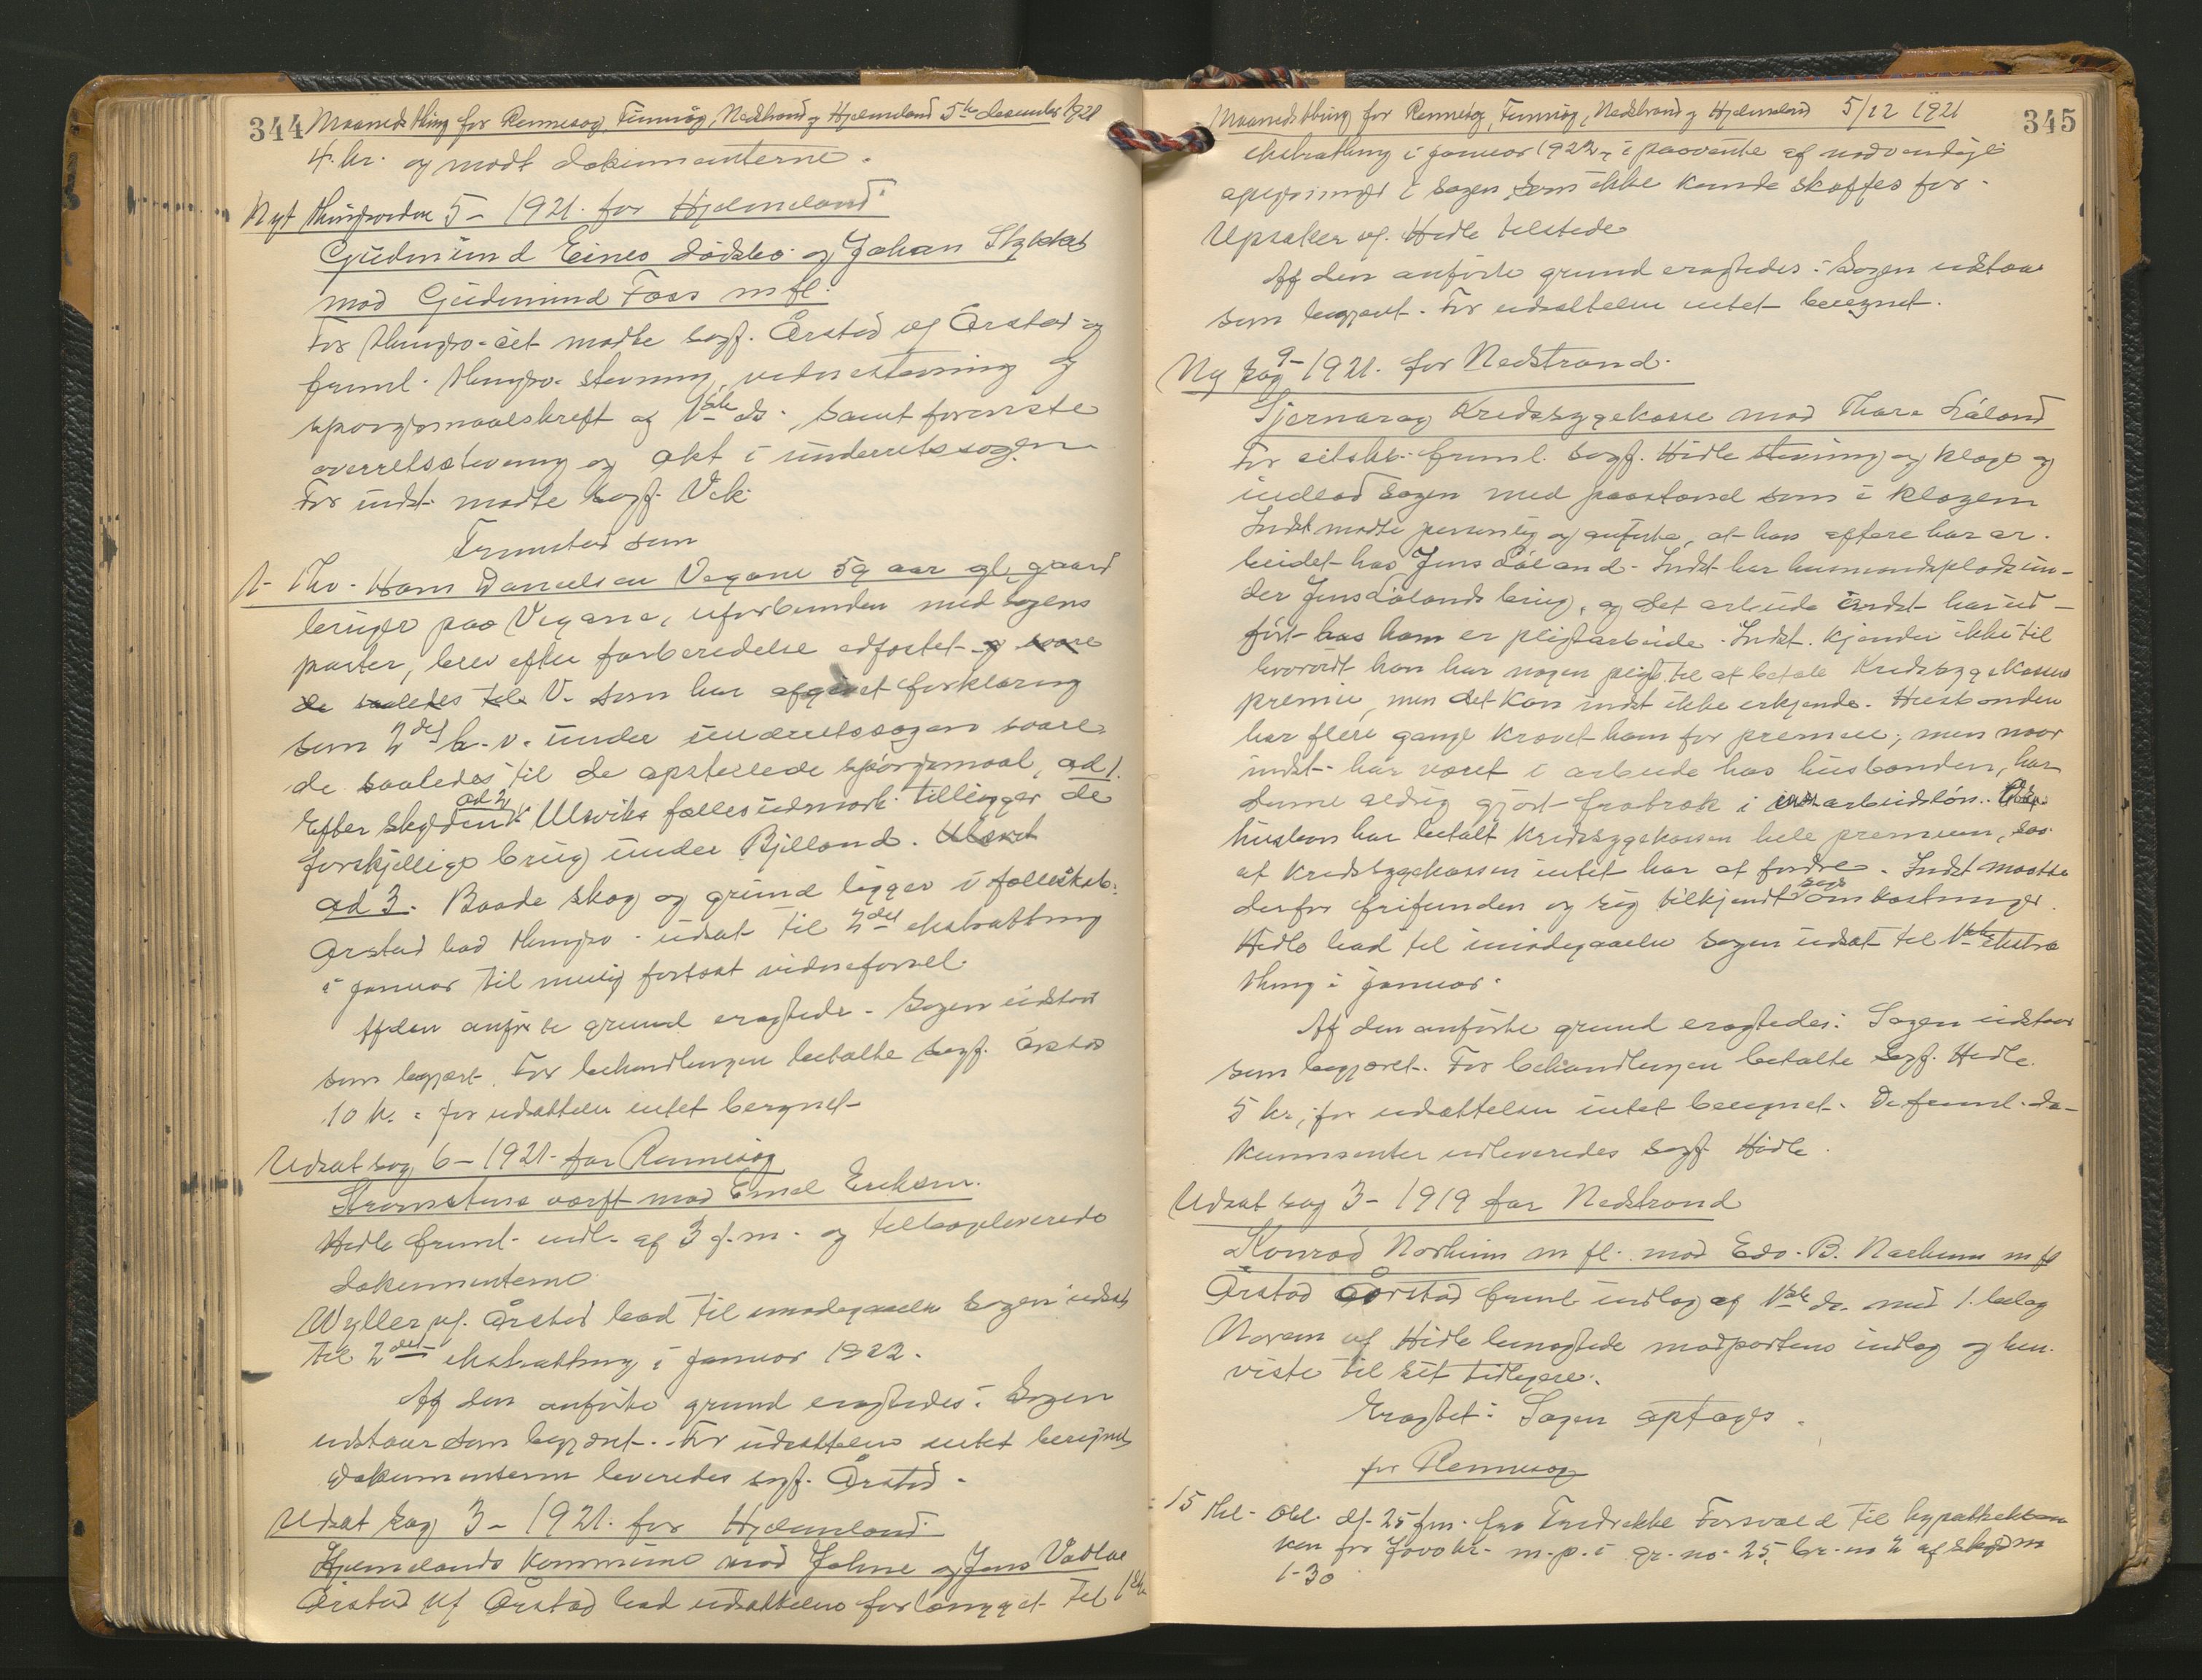 344 Maanedsthing for Rennesøy, Finnøy, Nedstrand og Hjelmeland 5te december 1921
4 kr. og modt dokumenterne.
Nyt thingsvidne 5 - 1921 for Hjelmeland
Gudmund Eines dødsbo og Johan
mod Gudmund Foss m fl.
For thingsv. møtte sagf. Årstad vf Årstad og
freml. thingsv. stevning, vidnestevning og
spørgsmaalskrift af 1ste ds. samt forenste
overretsstevning og akt i underretssagen
For indst. møtte sagf. Vek
Fremstod som
1 - Tho. Hans Danielsen Vegane 59 aar gl, gaard
bruger paa Vegane, uforbunden med sagens
parter, blev efter forberedelse edfæstet og svare
de saaledes til V. som har afgivet forklaring
som 2det h. v. under underretssagen svare
de saaledes til de opstillede spørgsmaal, ad 1.
ad 2
Efter Ulsviks fælles udmark tillægger de
forskjellige brug under Bjelland.
ad 3. Baade skog og grund ligger i fælleskab.
Årstad bad thingsv. udsat til 2det ekstrathing
i januar til mulig fortsat vidneførsel.
Af den anførte grund eragtedes. Sagen udstaar
som begjært. For behandlingen betalte sagf. Årstad
10 kr. : for udsættelsen intet beregnet
Udsat sag 6 - 1921 for Rennesøy
værft mod Emil Eriksen.
Hidle freml. indl. af 3 f. m. og tilbageleverede
dokumenterne
Wyller vf. Årstad bad til imødegaaelse sagen udsat
til 2det ekstrathing i januar 1922.
Af den anførte grund eragtedes: Sagen
udstaar som begjæret. For udsættelsen intet beregnet
Dokumenterne leveredes sagf. Årstad.
Udsat sag 3 - 1921 for Hjelmeland
Hjelmelands kommune mod Johne og Jens Vadla
Årstad vf Årstad bad udsættelsen forlænget til 1ste
Maanedsthing for Rennesøy, Finnøy, Nedstrand og Hjelmeland 5/12 1921 345
ekstrathing i januar 1922 i paavente af nødvendige
oplysninger i sagen, som ikke kunde skaffes før.
Upsaker vf. Hidle tilstede
Af den anførte grund eragtedes: Sagen udstaar
som begjæret. For udsættelsen intet beregnet.
Ny sag 9 - 1921 for Nedstrand.
Sjernarøy Kredssygekasse mod Thore Låland
For citskb. freml. sagf. Hidle stevning og klage og
indlod sagen med paastand som i klagen
Indst møtte personlig og anførte, at han oftere har ar-
beidet hos Jens Låland. Indst. har husmandsplads un-
der Jens Lålands brug, og det arbeide indst. har ud-
ført hos ham er pligtarbeide. Indst. kjender ikke til
hvorvidt han har nogen pligt til at betale Kredssygekassens
premie, men det kan indst ikke erkjende. Husbonden
har flere gange krævet ham for premie; men naar
indst. har været i arbeide hos husbonden, har
denne aldrig gjort fratræk i indst arbeidsløn.
husbon har betalt Kredssygekassen hele premien, saa
at Kredssygekassen intet har at fordre. Indst maatte
derfor frifindes og sig tilkjendt sags omkostninger.
Hidle bad til imødegaaelse sagen udsat til 1ste ekstra
thing i januar.
Af den anførte grund eragtedes: Sagen udstaar
som begjæret. For behandlingen betalte sagf. Hidle
5 kr; for udsættelsen intet beregnet. De freml. do-
kumenter udleveredes sagf Hidle.
Udsat sag 3 - 1919 for Nedstrand
Konrad Norheim m fl. mod Edv. B. Norheim m fl
Årstad Årstad freml indlæg af 1ste ds. med 1. bilag
vf Hidle benegtede modpartens indlæg og hen-
viste til sit tidligere.
Eragtet: Sagen optages.
for Rennesøy
15 Obl. df. 25 f.m. fra Fredrikke til hypothekban
ken for kr. m. p. i gr. no. 25, br. no 2 af skyld m
1-30